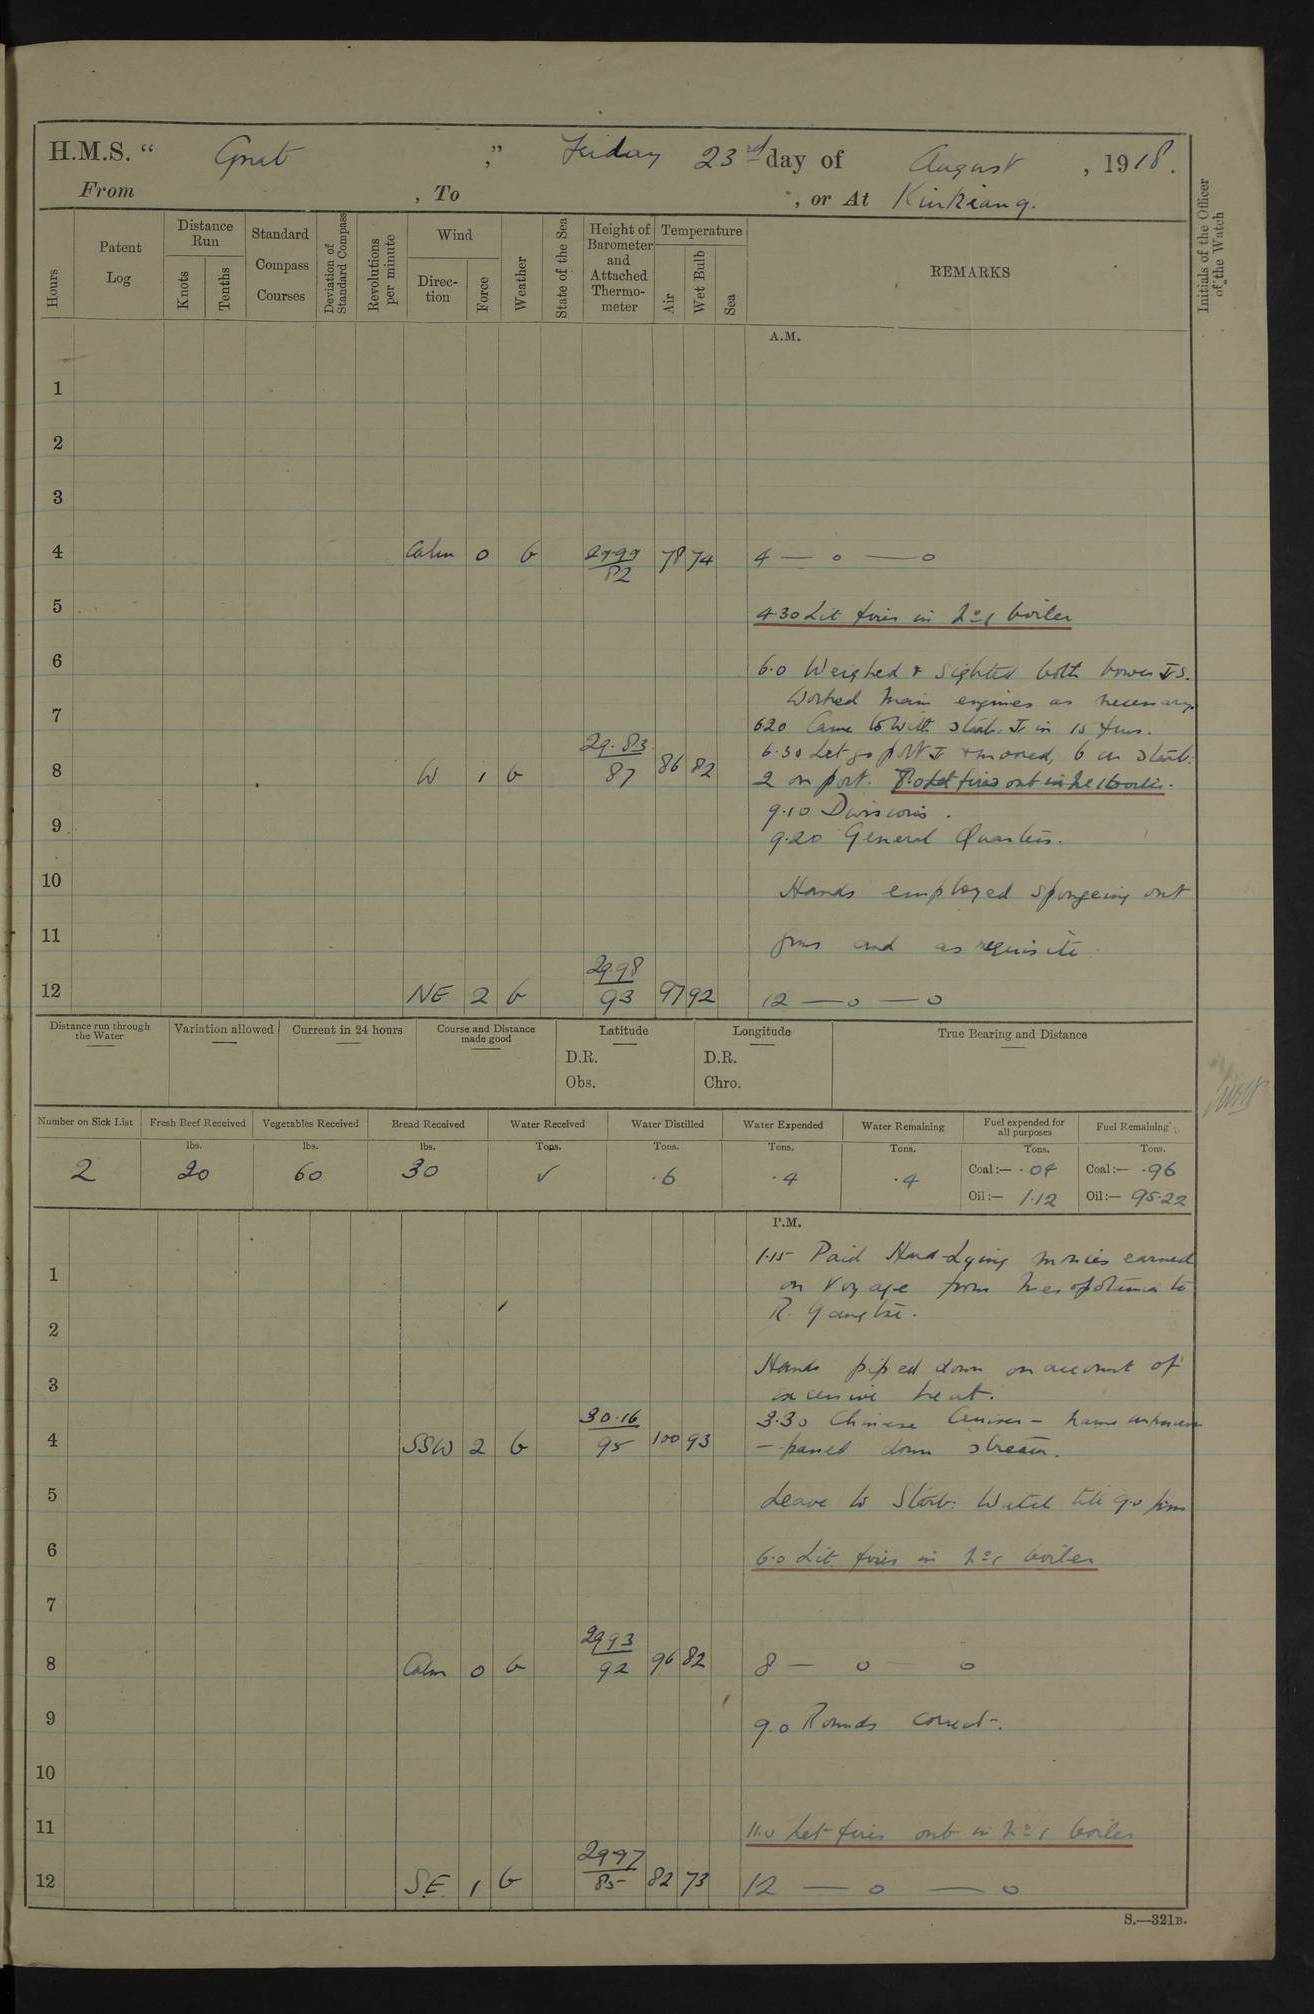 H.M.S. “ Gnat ,” Friday 23rd day of August , 1918.
From , To , or At Kiukiang.
Hours
Patent Log
Distance Run
Knots
Tenths
Standard Compass Courses
Deviation of Standard Compass
Revolutions per minute
Wind
Direction
Force
Weather
State of the Sea
Height of Barometer and Attached Thermometer
Temperature
Air
Wet Bulb
Sea
REMARKS
Initials of the Officer of the Watch
A.M.
1
2
3
4 Calm 0 b 29.99 82 78 74 4 — o — o
5 4.30 Lit fires in No 1 boiler
6 6.0 Weighed & sighted both bower ⚓s.
Worked main engines as necessary.
7 6.20 Came to with starb. ⚓ in 15 fms.
6.30 Let go port ⚓ & moored, 6 on starb:
8 W 1 b 29.83 87 86 82 2 on port. 8.0 Let fires out in No 1 boiler.
9.10 Divisions.
9 9.20 General Quarters.
10 Hands employed spongeing out
11 guns and as requisite
12 NE 2 b 29.98 93 97 92 12 — o — o
Distance run through the Water
Variation allowed
Current in 24 hours
Course and Distance made good
Latitude
D.R.
Obs.
Longitude
D.R.
Chro.
True Bearing and Distance
Number on Sick List
Fresh Beef Received
Vegetables Received
Bread Received
Water Received
Water Distilled
Water Expended
Water Remaining
Fuel expended for all purposes
Fuel Remaining
lbs. lbs. lbs. Tons. Tons. Tons. Tons. Tons. Tons.
2 20 60 30 ✓ .6 .4 .4 Coal:— .04 Coal:— .96
Oil:— 1.12 Oil:— 95.22
P.M.
1.15 Paid Hard-Lying monies earned
1 on voyage from Mesopotamia to
2 R. Yangtse.
Hands piped down on account of
3 excessive heat.
3.30 Chinese Cruiser – name unknown
4 SSW 2 b 30.16 95 100 93 – passed down stream.
5 Leave to Starb: Watch till 9.0 pm
6 6.0 Lit fires in No 1 boiler
7
8 Calm 0 b 29.93 92 96 82 8 — o — o
9 9.0 Rounds correct.
10
11 11.0 Let fires out in No 1 boiler
12 S.E. 1 b 29.97 85 82 73 12 — o — o
S.—321B.